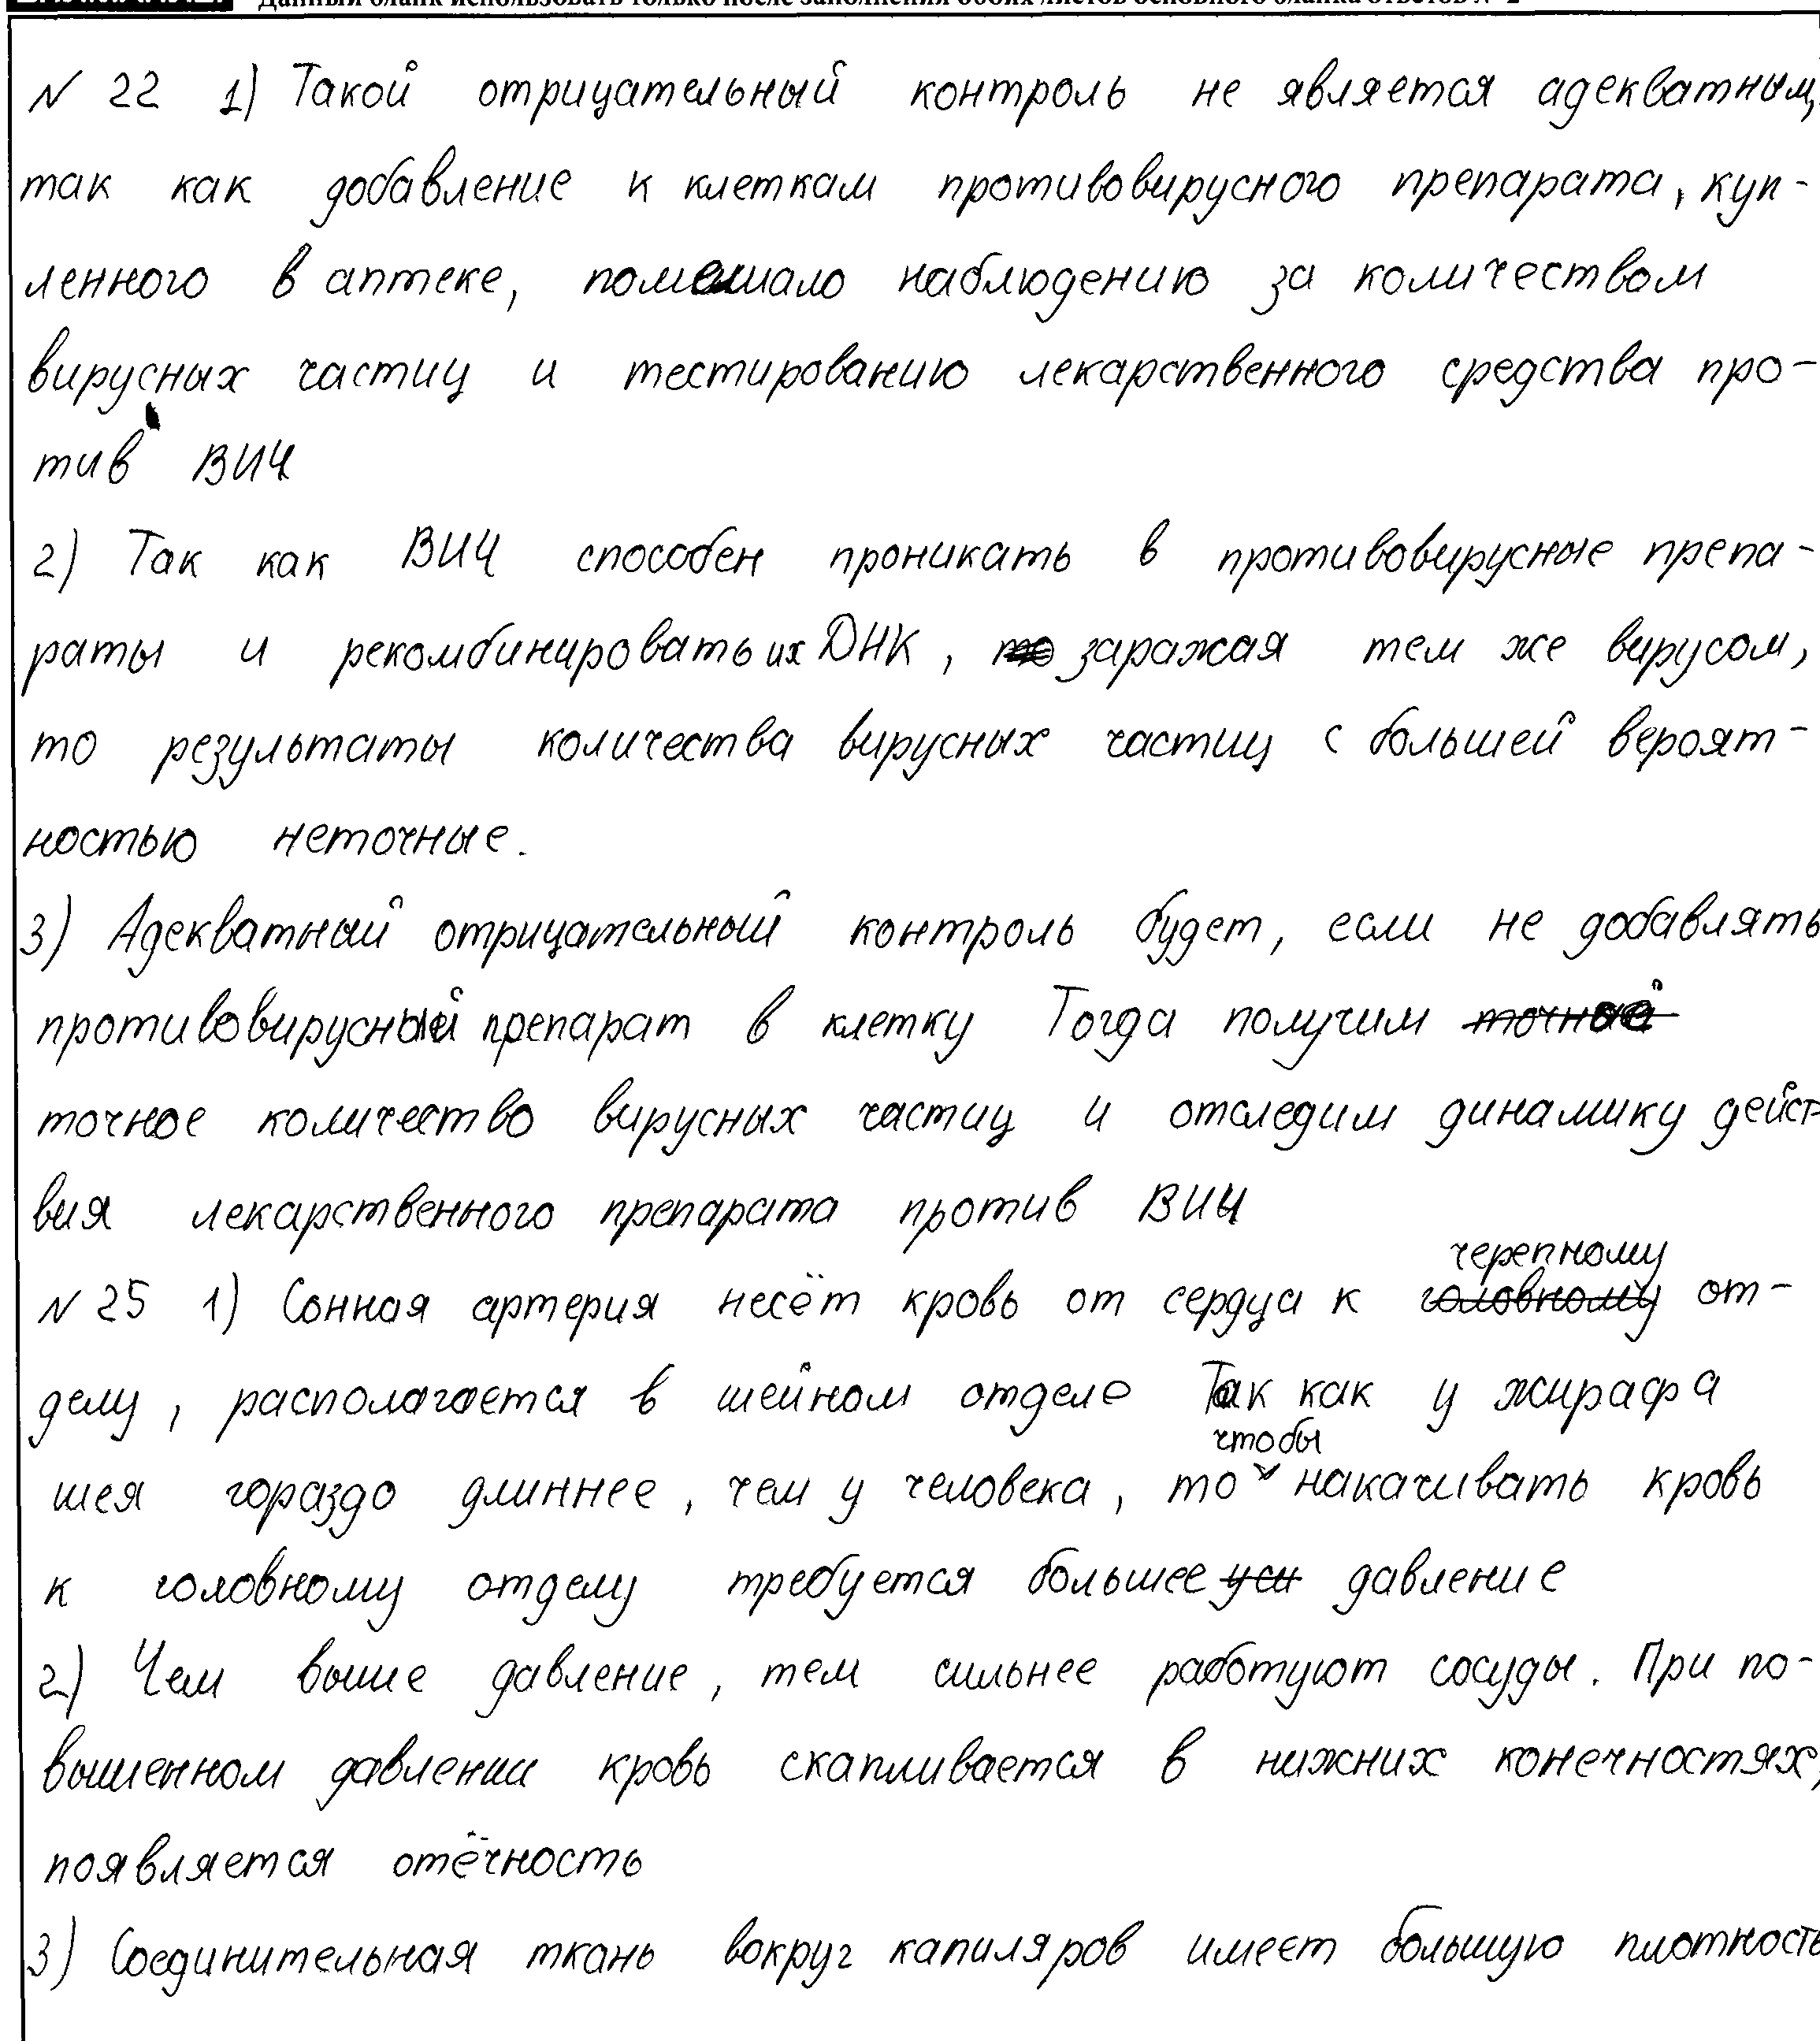 Данный бланк использовать только после заполнения обоих листов основного бланка ответов № 2
N 22 1) Такой отрицательный контроль не является адекватным,
так как добавление к клеткам противовирусного препарата, куп-
ленного в аптеке, помешало наблюдению за количеством
вирусных частиц и тестированию лекарственного средства про-
тив ВИЧ
2) Так как ВИЧ способен проникать в противовирусные препа-
раты и рекомбинировать их ДНК, заражая тем же вирусом,
то результаты количества вирусных частиц с большей вероят-
ностью неточные.
3) Адекватный отрицательный контроль будет, если не добавлять
противовирусный препарат в клетку Тогда получим
точное количество вирусных частиц и отследим динамику дейст
вия лекарственного препарата против ВИЧ
N 25 1) Сонная артерия несёт кровь от сердца к черепному от-
делу, располагается в шейном отделе Так как у жирафа
шея гораздо длиннее, чем у человека, то чтобы накачивать кровь
к головному отделу требуется большее давление
2) Чем выше давление, тем сильнее работуют сосуды. При по-
вышенном давлении кровь скапливается в нижних конечностях,
появляется отёчность
3) Соединительная ткань вокруг капиляров имеет большую плотность